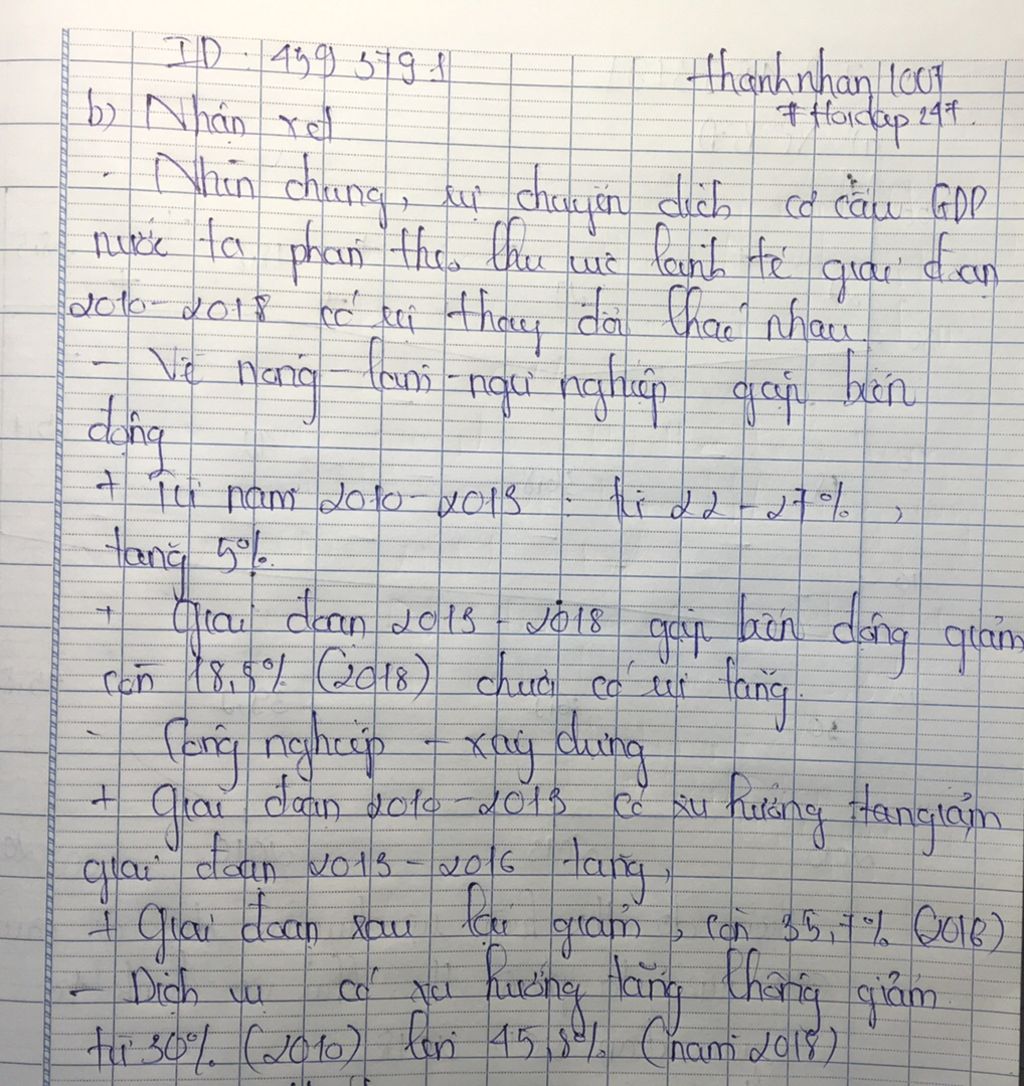 ID: 4593791
thanhnhan1007
#Hoidap247.
b) Nhận xét
- Nhìn chung, sự chuyển dịch cơ cấu GDP
nước ta phân theo khu vực kinh tế giai đoạn
2010-2018 có sự thay đổi khác nhau.
- Về nông-lâm-ngư nghiệp gặp biến
động
+ Từ năm 2010-2013: từ 22-27%,
tăng 5%.
+ Giai đoạn 2013-2018 gặp biến động giảm
còn 18,8% (2018) chưa có sự tăng.
- Công nghiệp - xây dựng
+ Giai đoạn 2010-2013 có xu hướng giảm
giai đoạn 2013-2016 tăng,
+ Giai đoạn sau lại giảm, còn 35,7% (2018)
- Dịch vụ có xu hướng tăng không giảm
từ 30% (2010) lên 45,8% (năm 2018)